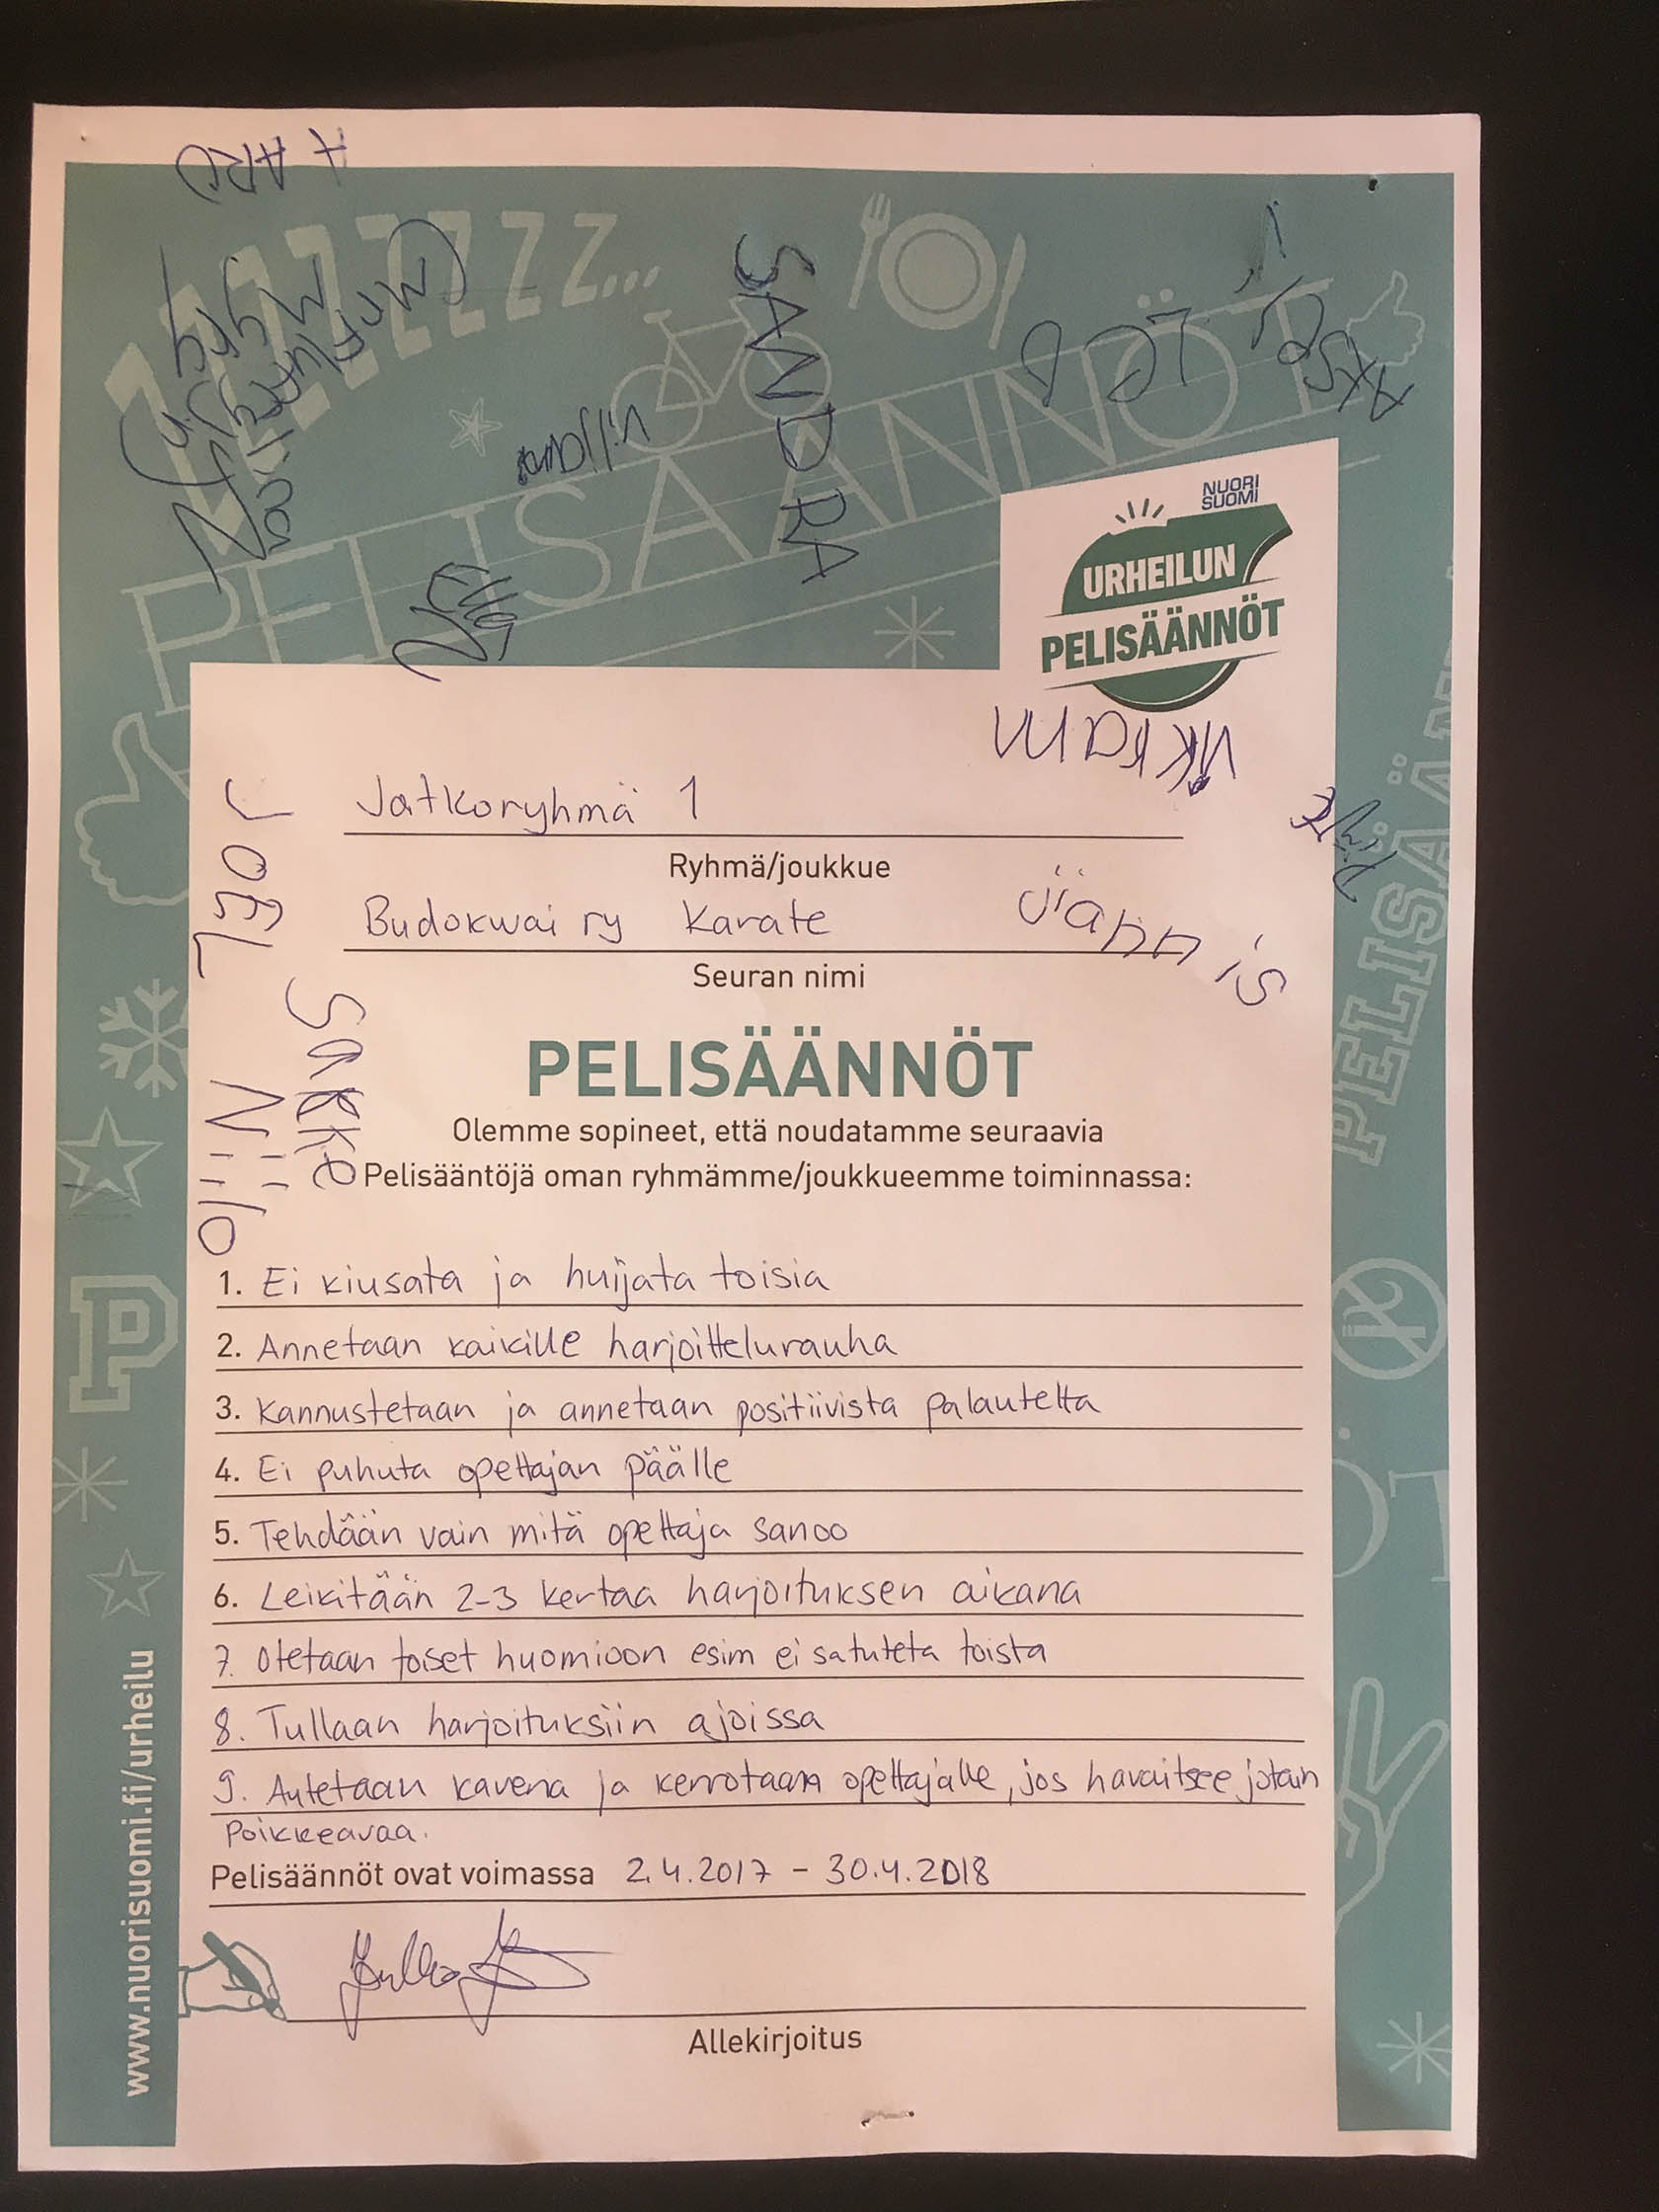 ZZZZZZZ...
PELISÄÄNNÖT
SANDRA
viljami
Ella
NUORI
SUOMI
URHEILUN
PELISÄÄNNÖT
VIKRAM
JOEL
Jatkoryhmä 1
Ryhmä/joukkue
Budokwai ry Karate
jiannis
Seuran nimi
Sakke
Niilo
PELISÄÄNNÖT
Olemme sopineet, että noudatamme seuraavia
Pelisääntöjä oman ryhmämme/joukkueemme toiminnassa:
1. Ei kiusata ja huijata toisia
2. Annetaan kaikille harjoittelurauha
3. Kannustetaan ja annetaan positiivista palautetta
4. Ei puhuta opettajan päälle
5. Tehdään vain mitä opettaja sanoo
6. Leikitään 2-3 kertaa harjoituksen aikana
7. Otetaan toiset huomioon esim ei satuteta toista
8. Tullaan harjoituksiin ajoissa
9. Autetaan kaveria ja kerrotaan opettajalle, jos havaitsee jotain
poikkeavaa.
Pelisäännöt ovat voimassa 2.4.2017 - 30.4.2018
Allekirjoitus
www.nuorisuomi.fi/urheilu
P